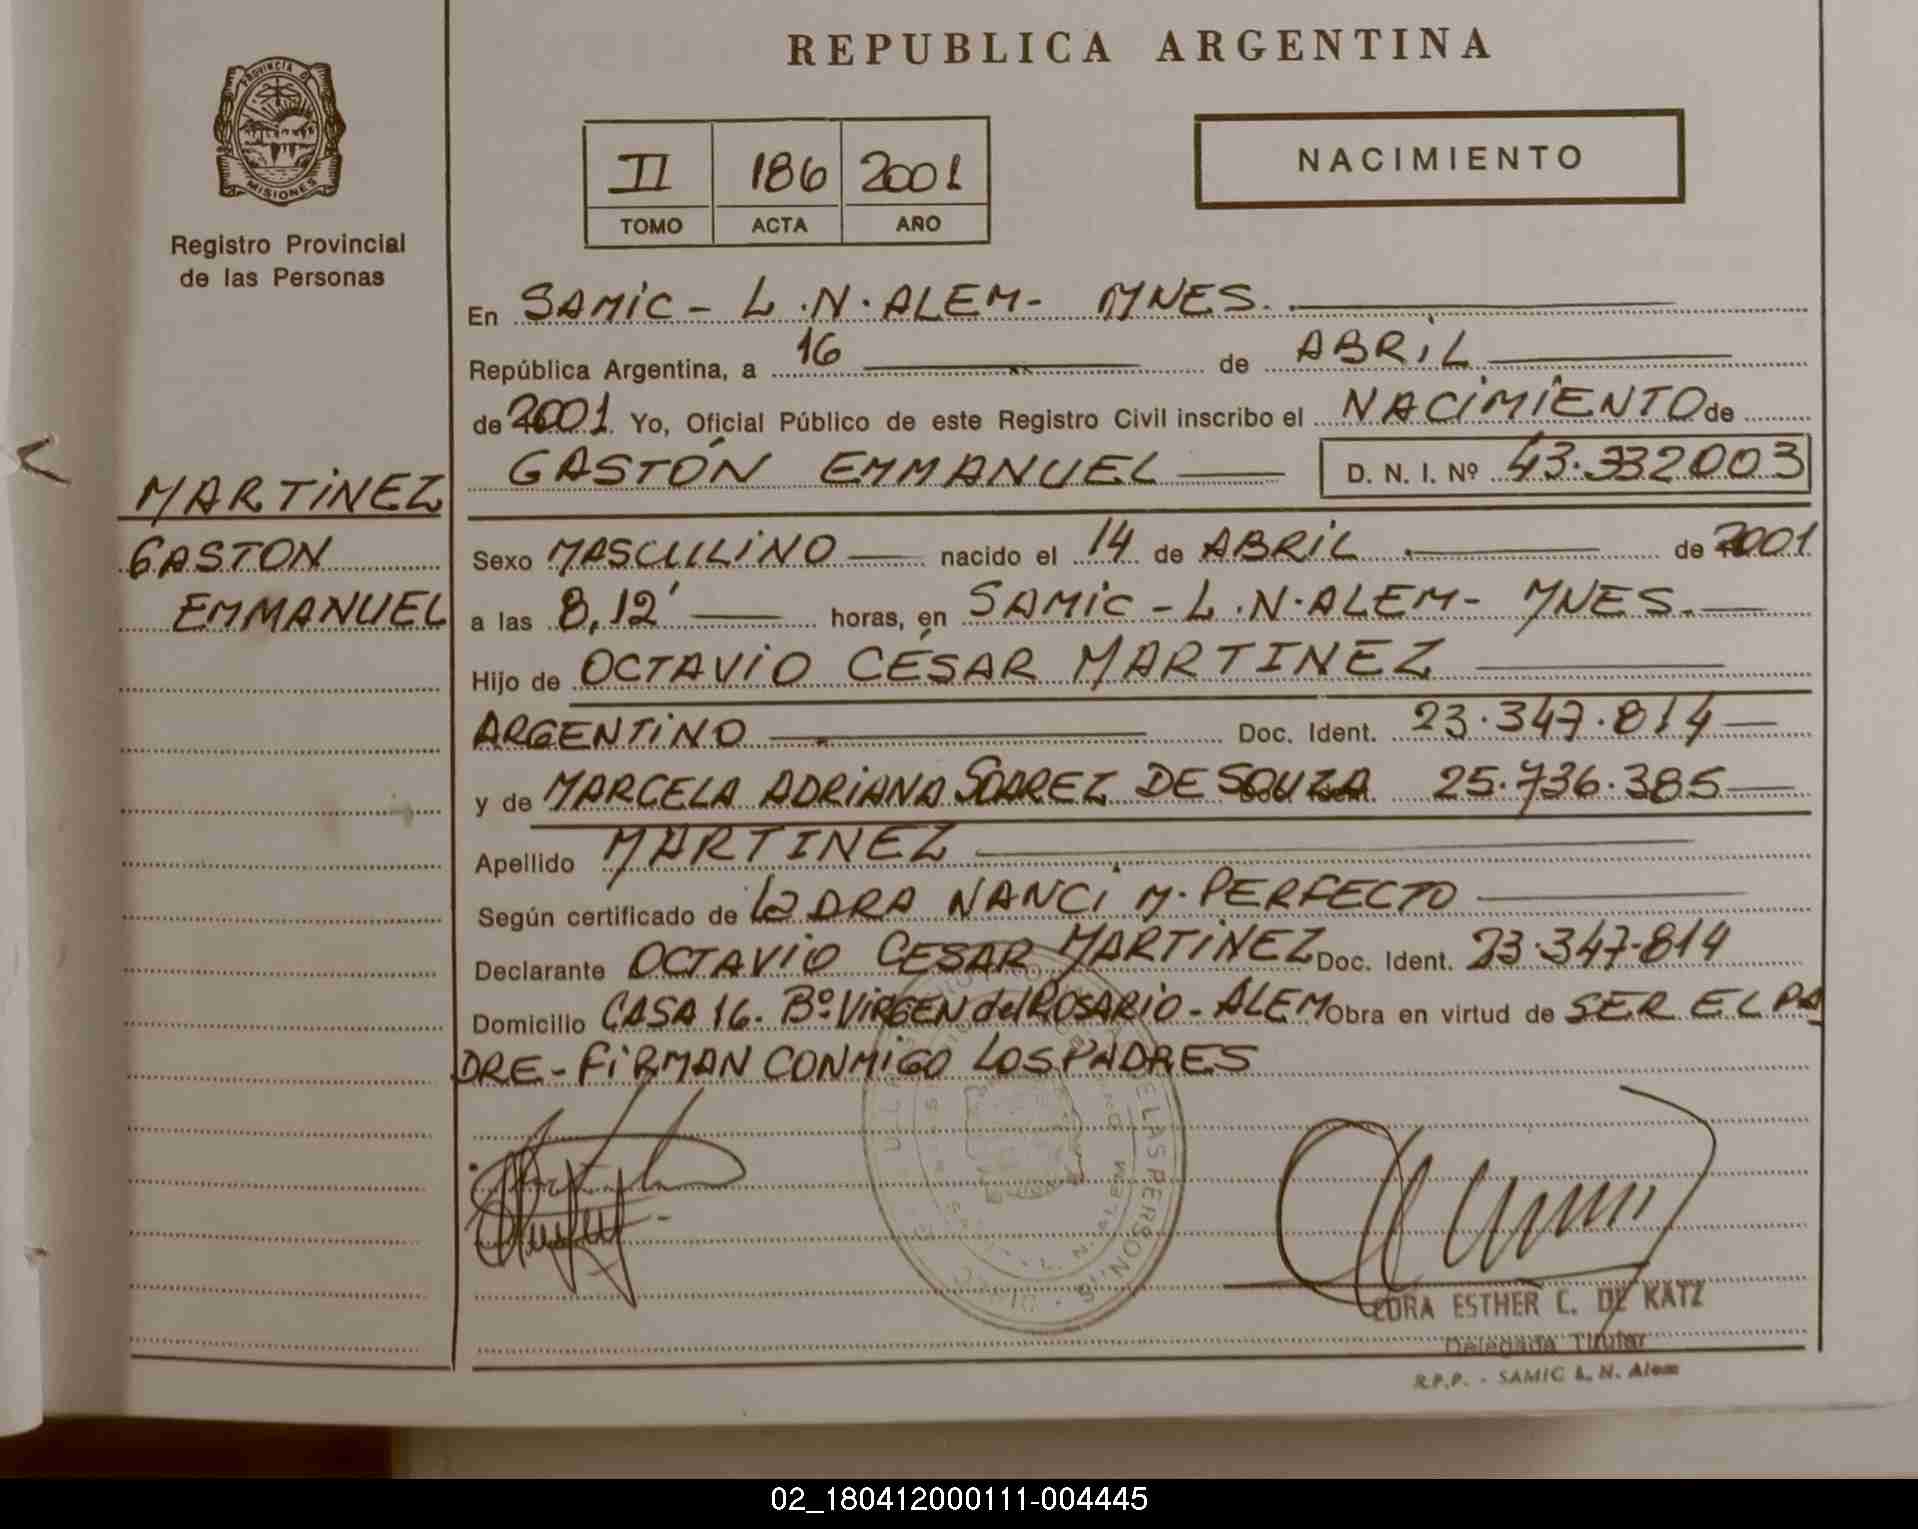 REPUBLICA ARGENTINA
PROVINCIA DE
MISIONES
Registro Provincial
de las Personas
II 186 2001
TOMO ACTA AÑO
NACIMIENTO
En SAMIC - L.N. ALEM - MNES.
República Argentina, a 16 de ABRIL
de 2001 Yo, Oficial Público de este Registro Civil inscribo el NACIMIENTO de
GASTÓN EMMANUEL D. N. I. Nº 43.332003
MARTINEZ
GASTON
EMMANUEL
Sexo MASCULINO nacido el 14 de ABRIL de 2001
a las 8,12' horas, en SAMIC - L.N. ALEM - MNES.
Hijo de OCTAVIO CÉSAR MARTINEZ
ARGENTINO Doc. Ident. 23.347.814
y de MARCELA ADRIANA SOAREZ DE SOUZA Doc. Ident. 25.736.385
Apellido MARTINEZ
Según certificado de La DRA NANCI M. PERFECTO
Declarante OCTAVIO CESAR MARTINEZ Doc. Ident. 23.347.814
Domicilio CASA 16. Bº VIRGEN del ROSARIO - ALEM Obra en virtud de SER EL PA
DRE - FIRMAN CONMIGO LOS PADRES
DE LAS PERSONAS
L. N. ALEM
ESTHER C. DE KATZ
Delegada Titular
R.P.P. - SAMIC L. N. Alem
02_180412000111-004445